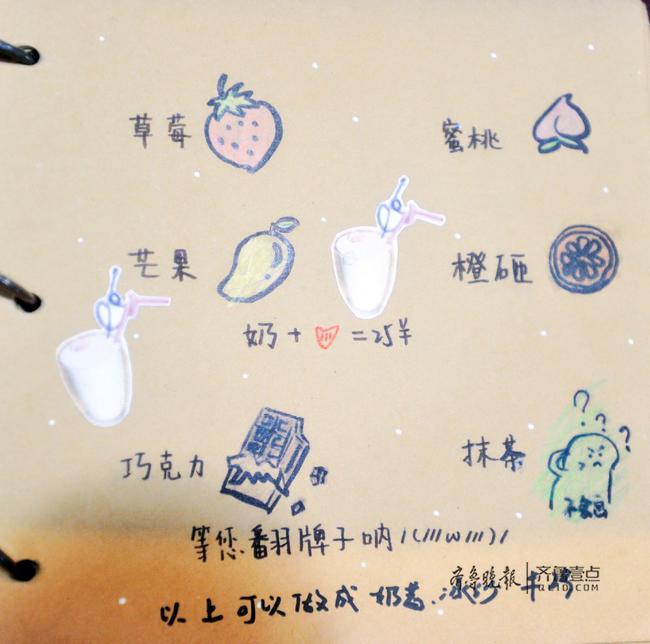 草莓
蜜桃
芒果
橙砸
奶+ =25￥
巧克力
抹茶
不会画
等您翻牌子呐/(///w///)/
以上可以做成 奶昔.冰沙
齐鲁晚报 齐鲁壹点
QL1D.COM